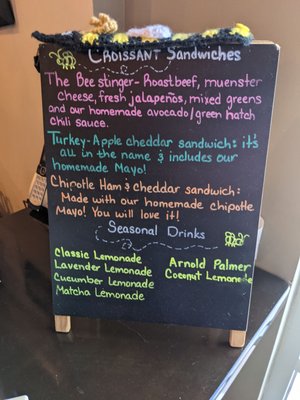 Croissant Sandwiches
The Bee stinger- Roastbeef, muenster
Cheese, fresh jalapeños, mixed greens
and our homemade avocado/green hatch
chili sauce.
Turkey-Apple cheddar sandwich: it's
all in the name & includes our
homemade Mayo!
Chipotle Ham & cheddar sandwich:
Made with our homemade chipotle
Mayo! You will love it!
Seasonal Drinks
Classic Lemonade
Lavender Lemonade
Cucumber Lemonade
Matcha Lemonade
Arnold Palmer
Coconut Lemonade